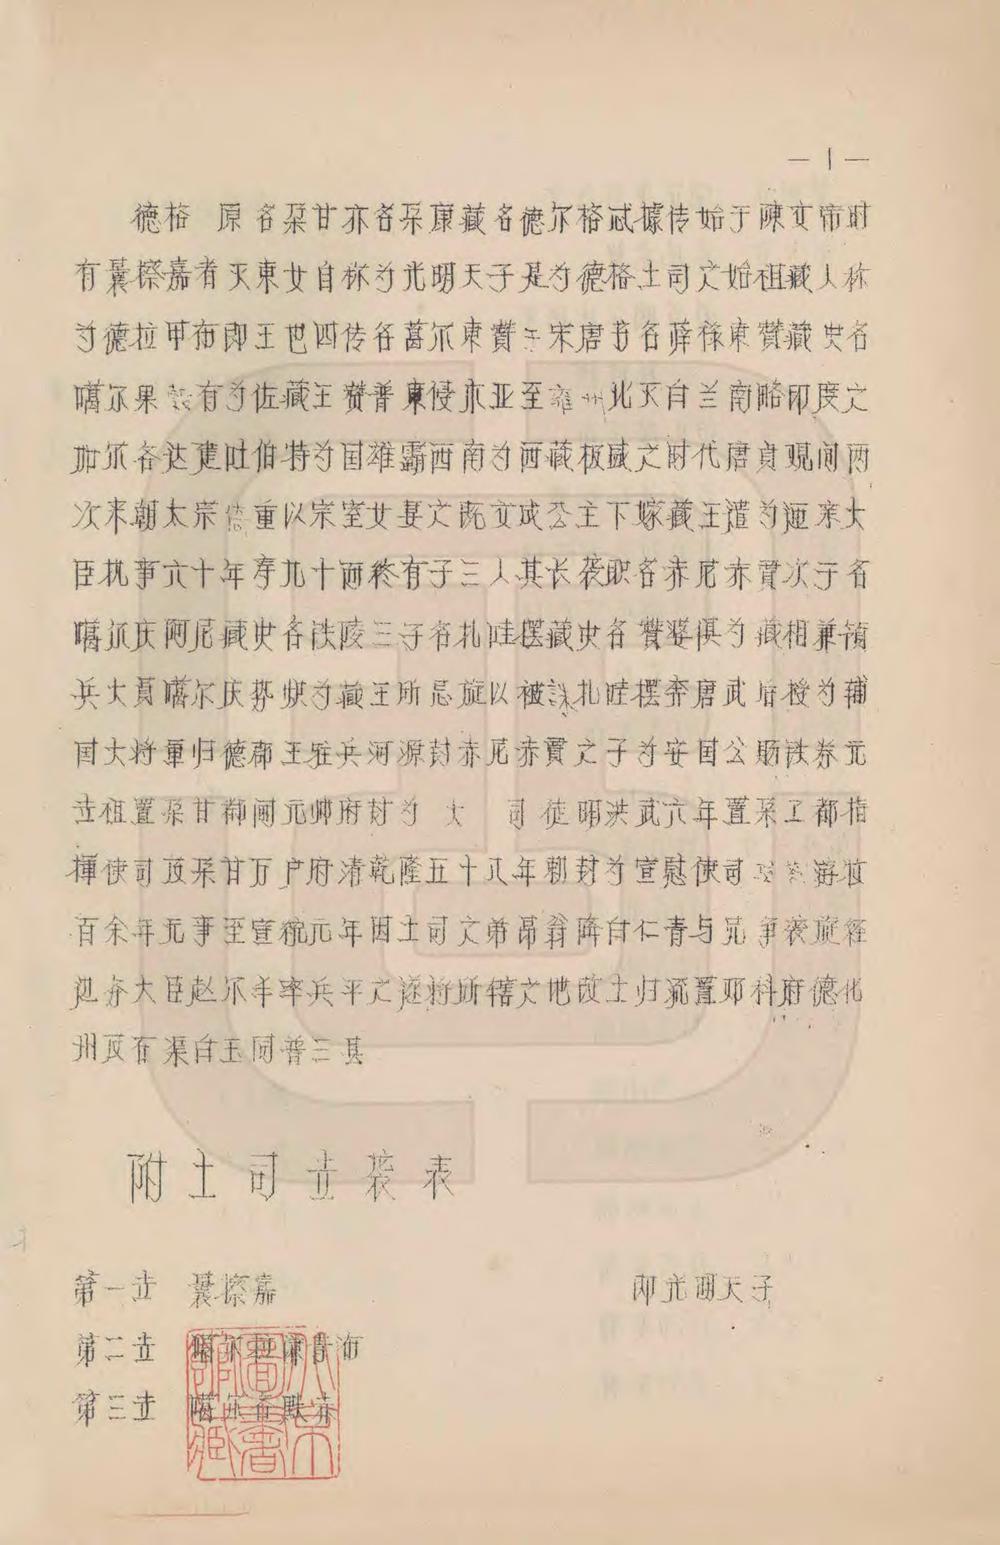 — 1 —
德格 原名朶甘亦名朶康藏名德尔格忒據传始于陳文帝时
有曩㮏嘉者灭東女自称为光明天子是为德格土司之始祖藏人称
为德拉甲布即王也四传名葛尔東賛于宋唐书名薛禄東賛藏史名
噶尔果 有为佐藏王賛普東侵 亚至雍州北灭白兰南略印度之
加尔各达建吐伯特为国雄霸西南为西藏极盛之时代唐貞观间两
次来朝太宗 重以宗室女妻之既文成公主下嫁藏王遣为迎亲大
臣执事六十年寿九十而終有子三人其长袭职名赤尼赤賛次子名
噶尔庆阿尼藏史名铁陵三子名札哇摆藏史名賛婆俱为藏相兼領
兵大員噶尔庆势炽为藏王所忌旋以被誅札哇摆奔唐武后授为輔
国大将軍归德郡王驻兵河源封赤尼赤賛之子为安国公賜铁券元
世祖置朶甘都闹元帅府封为 大 司徒明洪武六年置朶工都指
揮使司及朶甘万户府清乾隆五十八年勅封为宣慰使司 游牧
百余年无事至宣統元年因土司之弟昂翁降白仁青与兄爭袭旋經
边务大臣赵尔丰率兵平之遂将所辖之地改土归流置邓科府德化
州及石渠白玉同普三县
附土司世袭表
第一世 曩㮏嘉 即光明天子
第二世 噶尔拉 布
第三世 噶尔